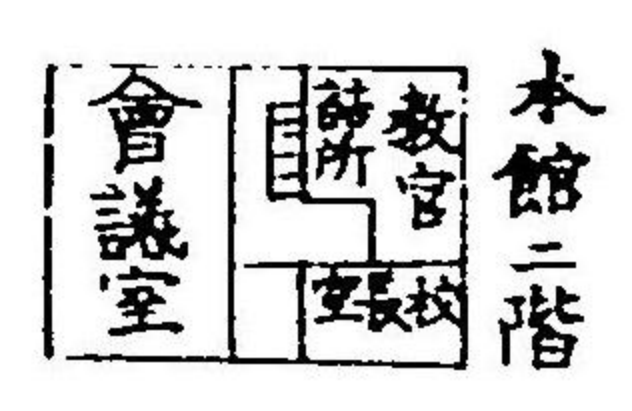 本館二階
教官
詰所
校長室
會議室